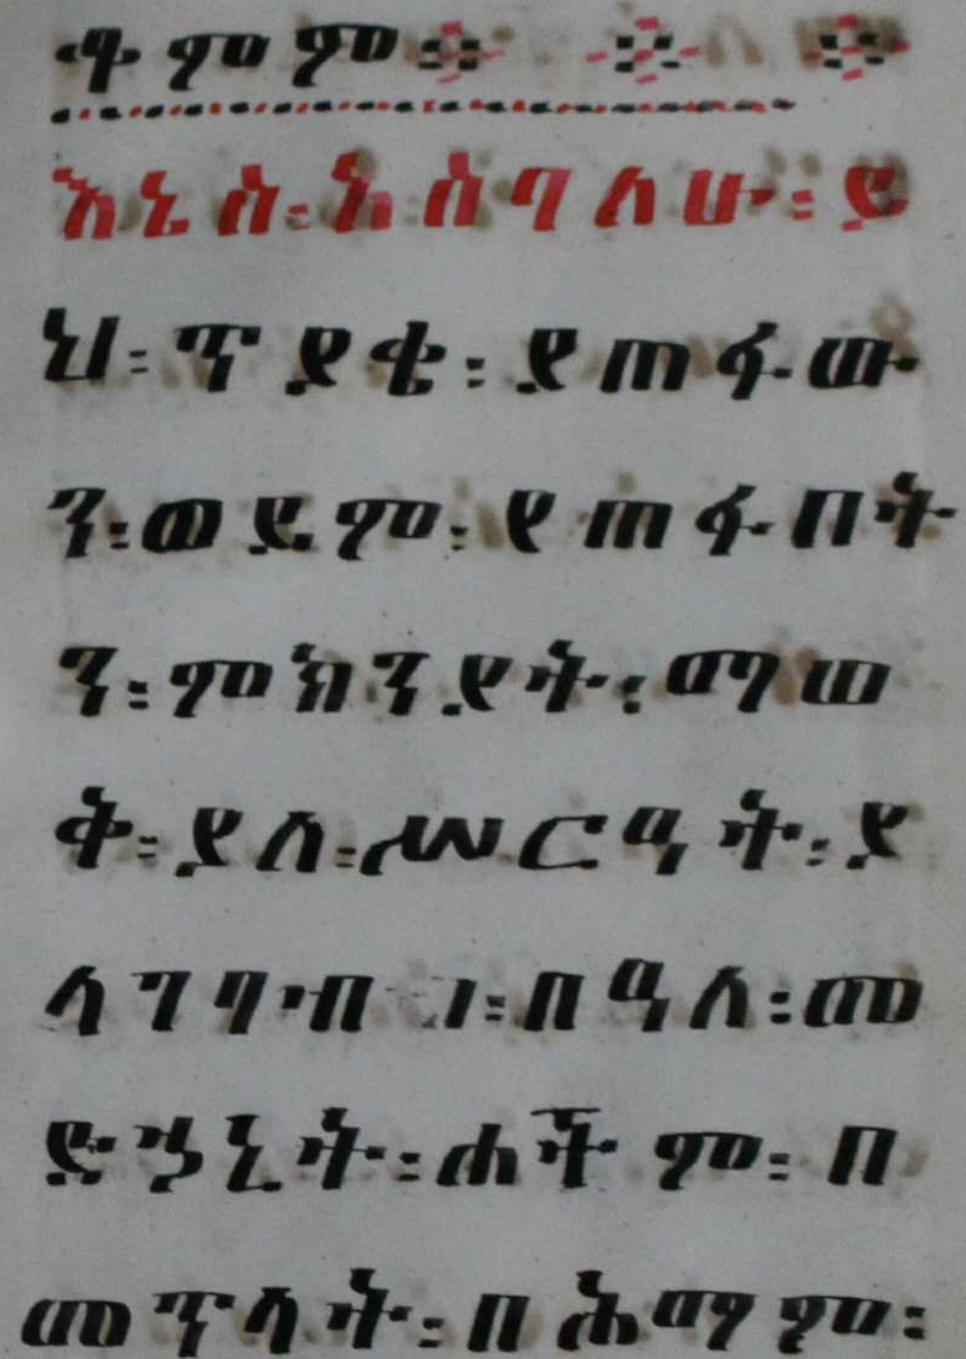 ፨ ፨ ፨
እኔስ፡እስባለሁ፡ይ
ህ፡ጥያቄ፡ያጠፋው
ን፡ወይም፡የጠፋበት
ን፡ምክንያት፡ማወ
ቅ፡ያለ፡ሥርዓት፡ያ
በዓለ፡መ
ድኃኒት፡ሐችም፡በ
መጥላት፡በሕማም፡